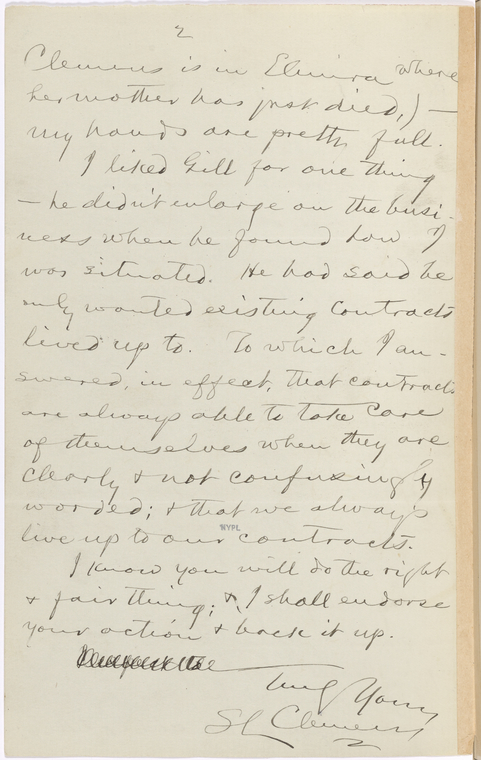 2
Clemens is in Elmira where
her mother has just died,) —
my hands are pretty full.
I liked Gill for one thing
— he didn't enlarge on the busi-
ness when he found how I
was situated. He had said he
only wanted existing contracts
lived up to. To which I an-
swered, in effect, that contracts
are always able to take care
of themselves when they are
clearly & not confusingly
worded; & that we always
live up to our contracts.
NYPL
I know you will do the right
& fair thing; & I shall endorse
your action & back it up.
Truly Yours
SL Clemens